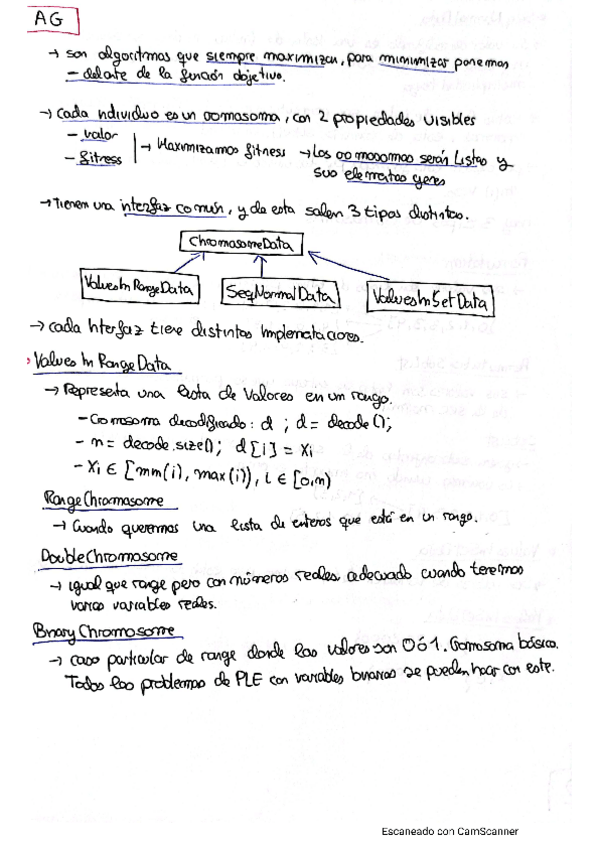 AG
→ son algoritmos que siempre maximizan, para minimizar ponemos
- delante de la función objetivo.
→ Cada individuo es un cromosoma, con 2 propiedades visibles
- valor
- fitness
→ Maximizamos fitness → Los cromosomas serán listas y
sus elementos genes
→ Tienen una interfaz común, y de esta salen 3 tipos distintos.
ChromosomeData
ValuesInRangeData SeqNormalData ValuesInSetData
→ cada Interfaz tiene distintas implementaciones.
Values In Range Data
→ Representa una lista de valores en un rango.
- Cromosoma decodificado: d ; d = decode();
- n = decode.size(); d[i] = Xi
- Xi ∈ [mm(i), max(i)), i ∈ [0,n)
RangeChromosome
→ Cuando queremos una lista de enteros que está en un rango.
DoubleChromosome
→ igual que range pero con números reales, adecuado cuando tenemos
varias variables reales.
BinaryChromosome
→ caso particular de range donde los valores son 0 ó 1. Cromosoma básico.
Todos los problemas de PLE con variables binarias se pueden hacer con este.
Escaneado con CamScanner